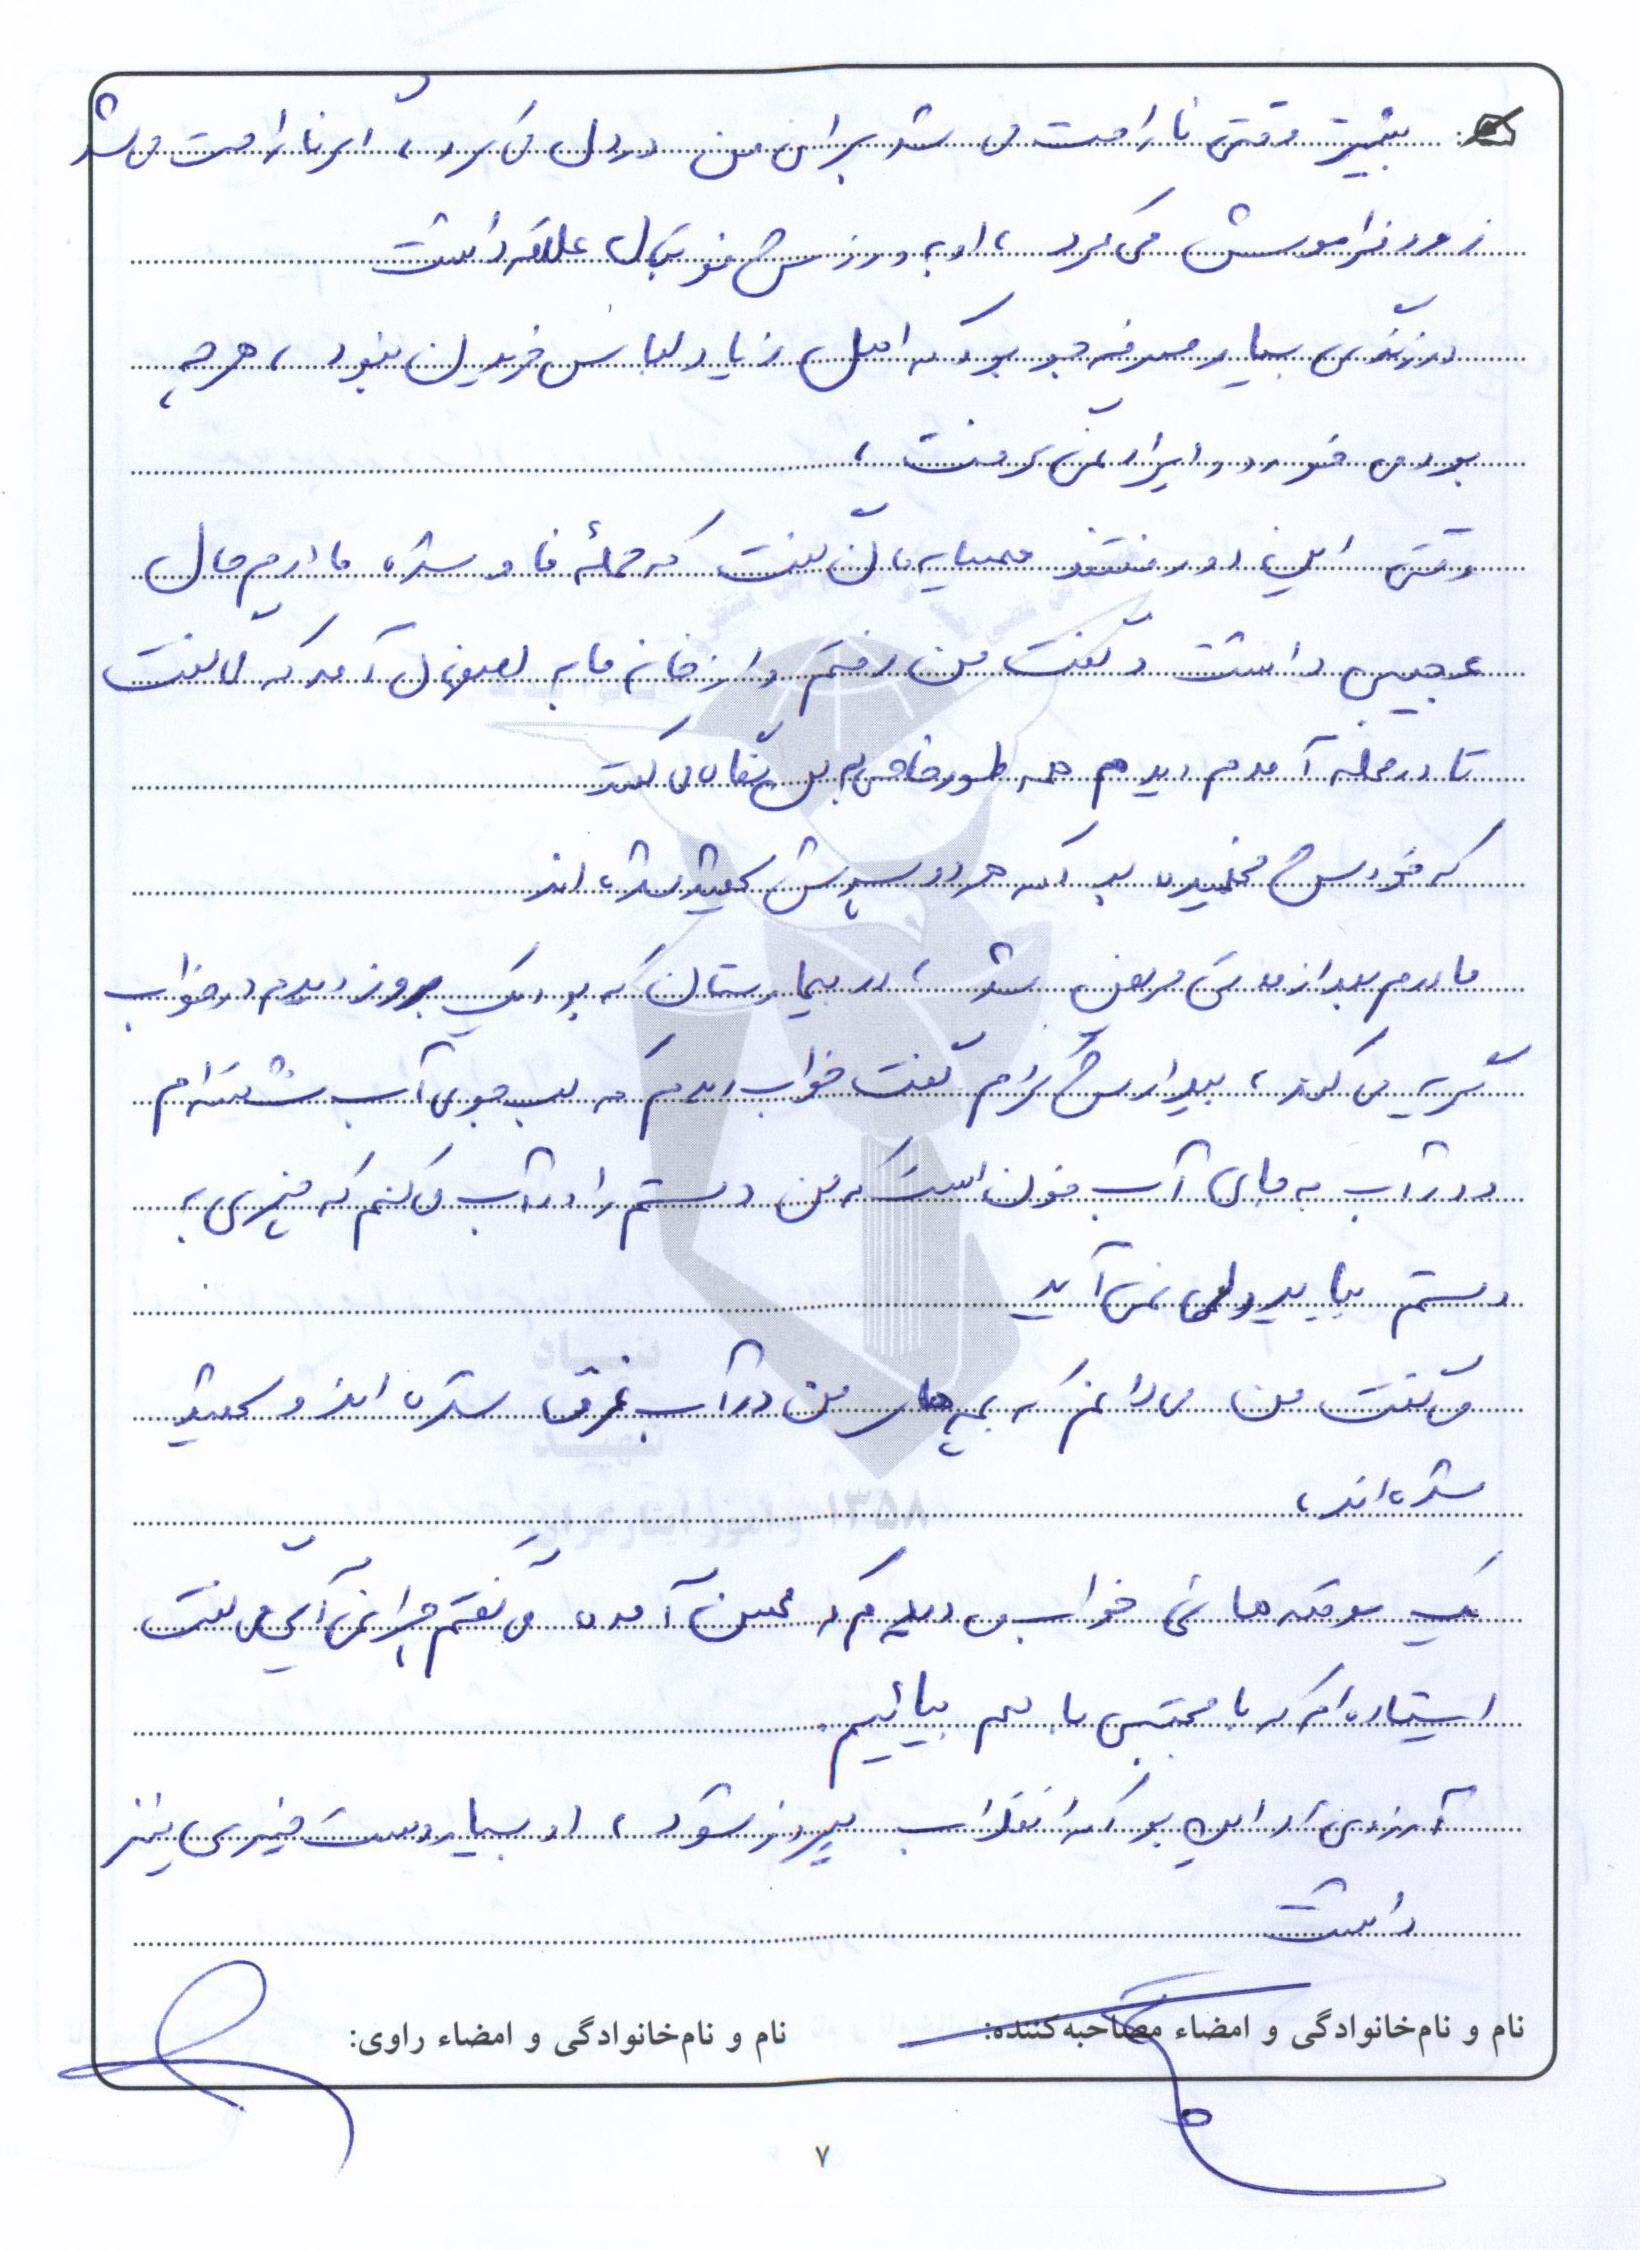 بیشتر وقتی ناراحت می شد برای من درددل می کرد، اگر ناراحت می شد
زود فراموش می کرد، او به ورزش فوتبال علاقه داشت
در زندگی بسیار صرفه جو بود که اهل زیاد لباس خریدن نبود، هر چه
بود می خورد و ایراد نمی گرفت،
وقتی این دو رفتند همسایه مان گفت که محله شده مادرم حال
عجیبی داشت و گفت من رفتم و از خانه ما به اصفهان آمد که می گفت
تا در محله آمدم دیدم همه طور خاصی به من نگاه می کنند
که خودش فهمیده بود که هر دو پسرش شهید شده اند
مادرم بعد از مدتی مریض شد، در بیمارستان که بود یک روز دیدم در خواب
گریه می کند، بیدارش کردم گفت خواب دیدم که لب جوی آب نشسته ام
و در آب به جای آب خون است که من دستم را در آب می کنم که چیزی به
دستم بیاید ولی نمی آید
می گفت من می دانم که بچه های من در آب غرق شده اند و شهید
شده اند،
یک موقع هائی خواب می دیدم که محسن آمده می گفتم چرا نمی آیی می گفت
ایستاده ام که با مجتبی با هم بیائیم.
آرزوی او این بود که انقلاب پیروز شود، او بسیار دست خیری نیز
داشت
نام و نام‌خانوادگی و امضاء مصاحبه‌کننده:
نام و نام‌خانوادگی و امضاء راوی:
۷